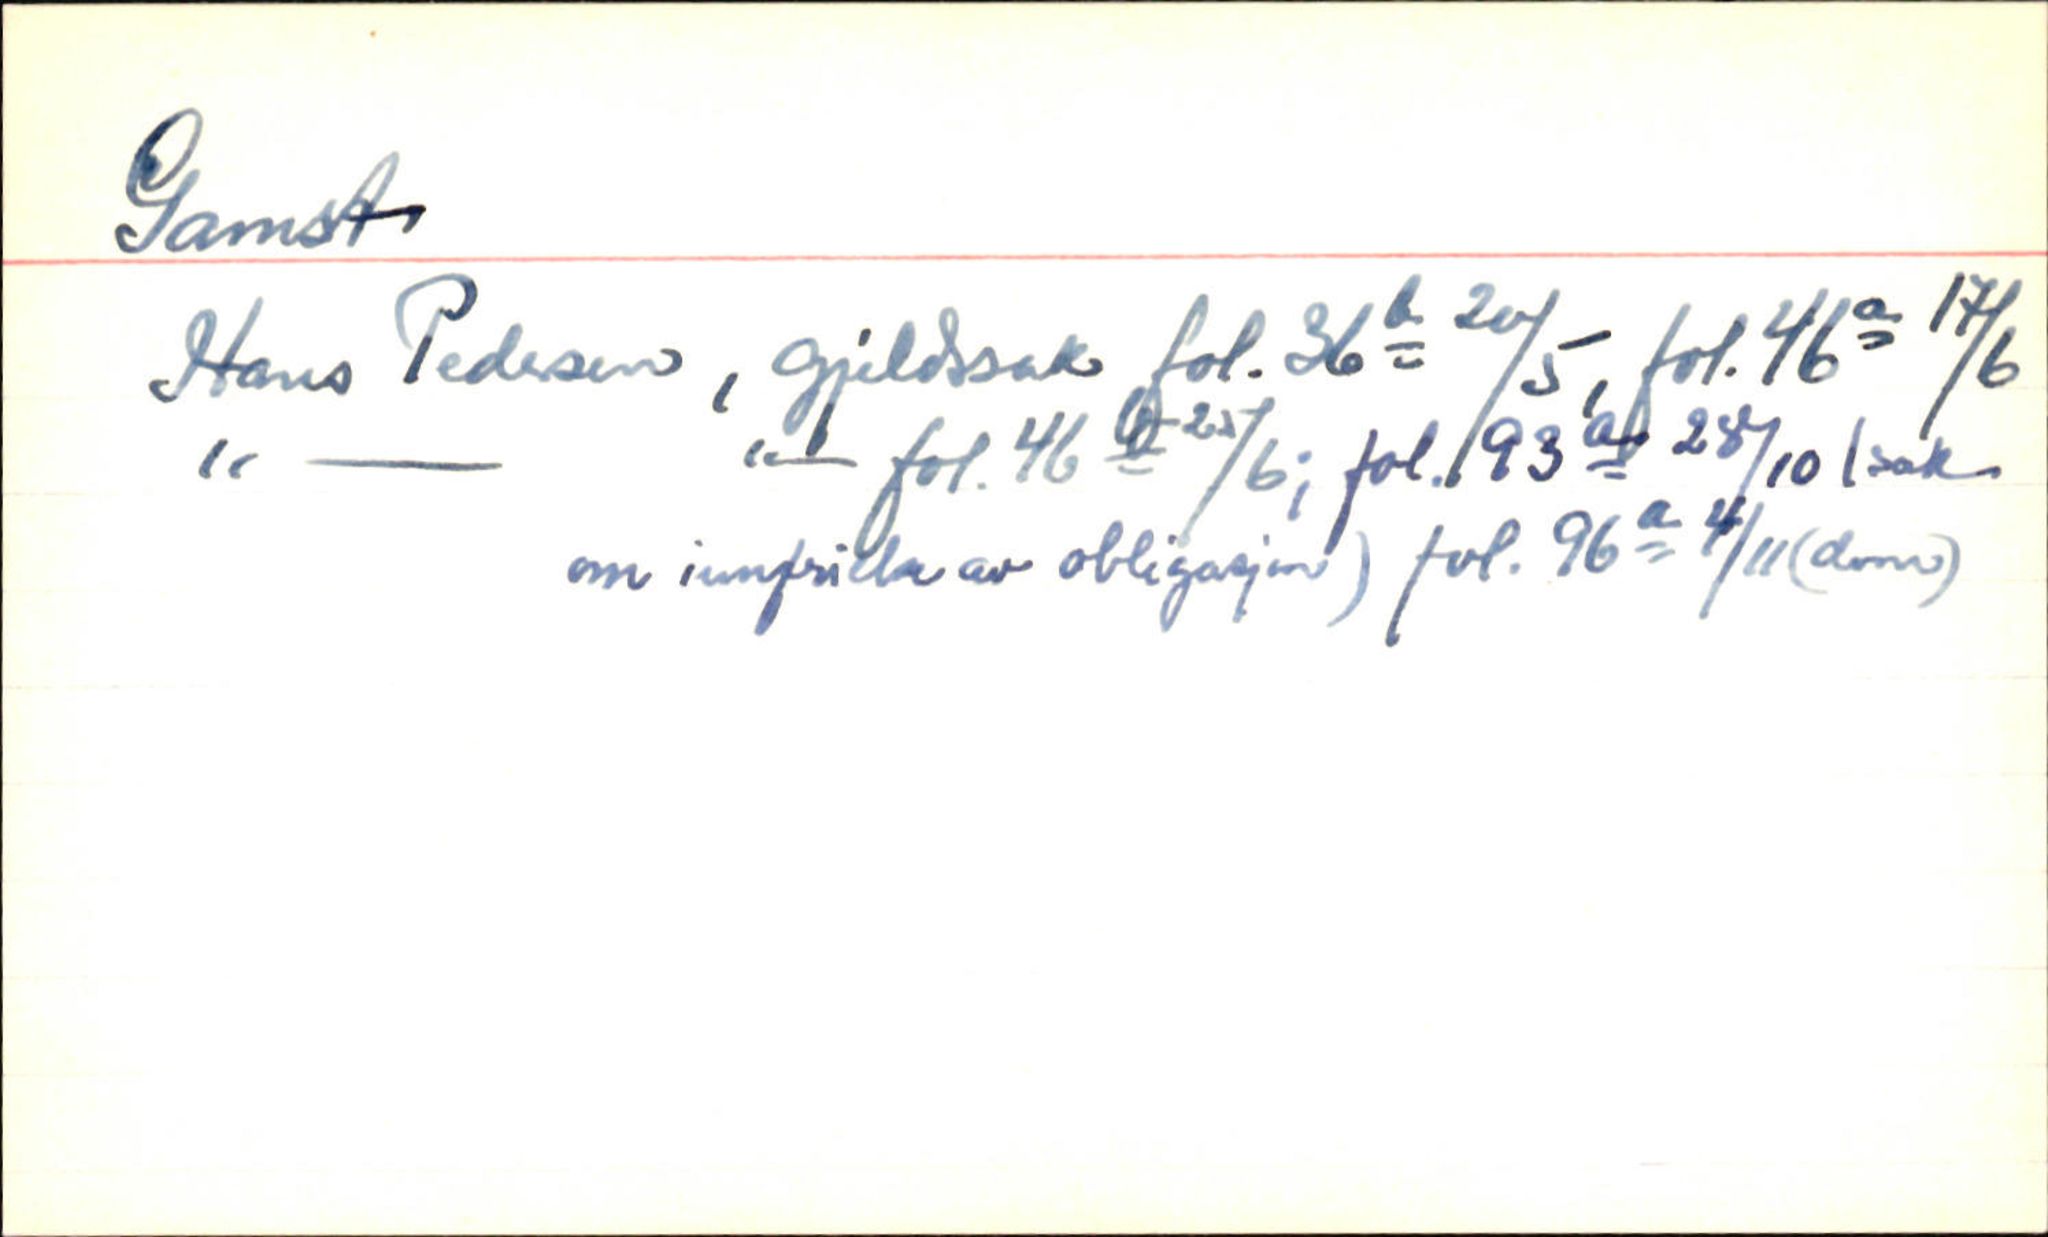 Gamst
Hans Pedersen, gjeldssak fol. 36 b 20/5, fol. 46 a 17/6
" — " — fol. 46 b 25/6; fol. 93 a 28/10 (sak
om innfrielse av obligasjon) fol. 96 a 4/11 (dom)